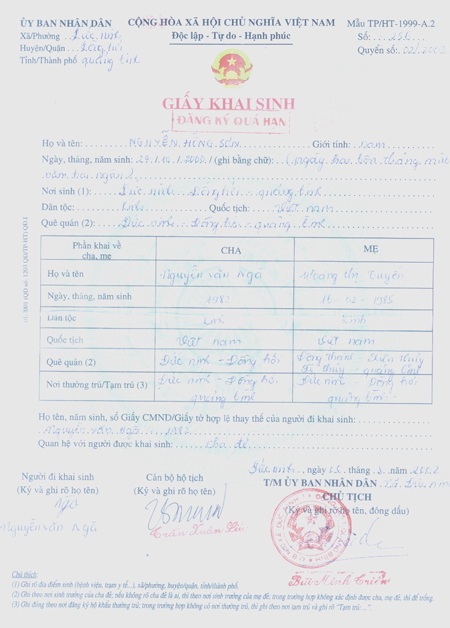 ỦY BAN NHÂN DÂN
Xã/Phường: Đức ninh
Huyện/Quận: Đồng hới
Tỉnh/Thành phố: quảng bình
CỘNG HÒA XÃ HỘI CHỦ NGHĨA VIỆT NAM
Độc lập - Tự do - Hạnh phúc
Mẫu TP/HT-1999-A.2
Số: 256
Quyển số:
GIẤY KHAI SINH
ĐĂNG KÝ QUÁ HẠN
Họ và tên: NGUYỄN HỒNG SƠN Giới tính: nam
Ngày, tháng, năm sinh: (ghi bằng chữ)
năm hai ngàn
Nơi sinh (1): Đức ninh - Đồng hới - quảng bình
Dân tộc: kinh Quốc tịch: việt nam
Quê quán (2): Đức ninh - Đồng hới - quảng bình
Phần khai về cha, mẹ CHA MẸ
Họ và tên Nguyễn văn Ngã Hoàng thị
Ngày, tháng, năm sinh 1982 1985
Dân tộc kinh kinh
Quốc tịch việt nam việt nam
Quê quán (2) Đức ninh - Đồng hới quảng bình
Nơi thường trú/Tạm trú (3) Đức ninh - Đồng hới quảng bình Đức ninh - Đồng hới quảng bình
Họ tên, năm sinh, số Giấy CMND/Giấy tờ hợp lệ thay thế của người đi khai sinh:
Nguyễn văn Ngã 1982
Quan hệ với người được khai sinh: cha đẻ
Đức ninh, ngày tháng năm
Người đi khai sinh
(Ký và ghi rõ họ tên)
Nguyễn văn Ngã
Cán bộ hộ tịch
(Ký và ghi rõ họ tên)
Trần Xuân
T/M ỦY BAN NHÂN DÂN
CHỦ TỊCH
(Ký và ghi rõ họ tên, đóng dấu)
Bùi Minh
Chú thích:
(1) Ghi rõ địa điểm sinh (bệnh viện, trạm y tế...), xã/phường, huyện/quận, tỉnh/thành phố.
(2) Ghi theo nơi sinh trưởng của cha đẻ; nếu không rõ cha đẻ là ai, thì ghi theo nơi sinh trưởng của mẹ đẻ; trong trường hợp không xác định được cha, mẹ đẻ, thì để trống.
(3) Ghi đúng theo nơi đăng ký hộ khẩu thường trú; trong trường hợp không có nơi thường trú, thì ghi theo nơi tạm trú và ghi rõ "Tạm trú:...".